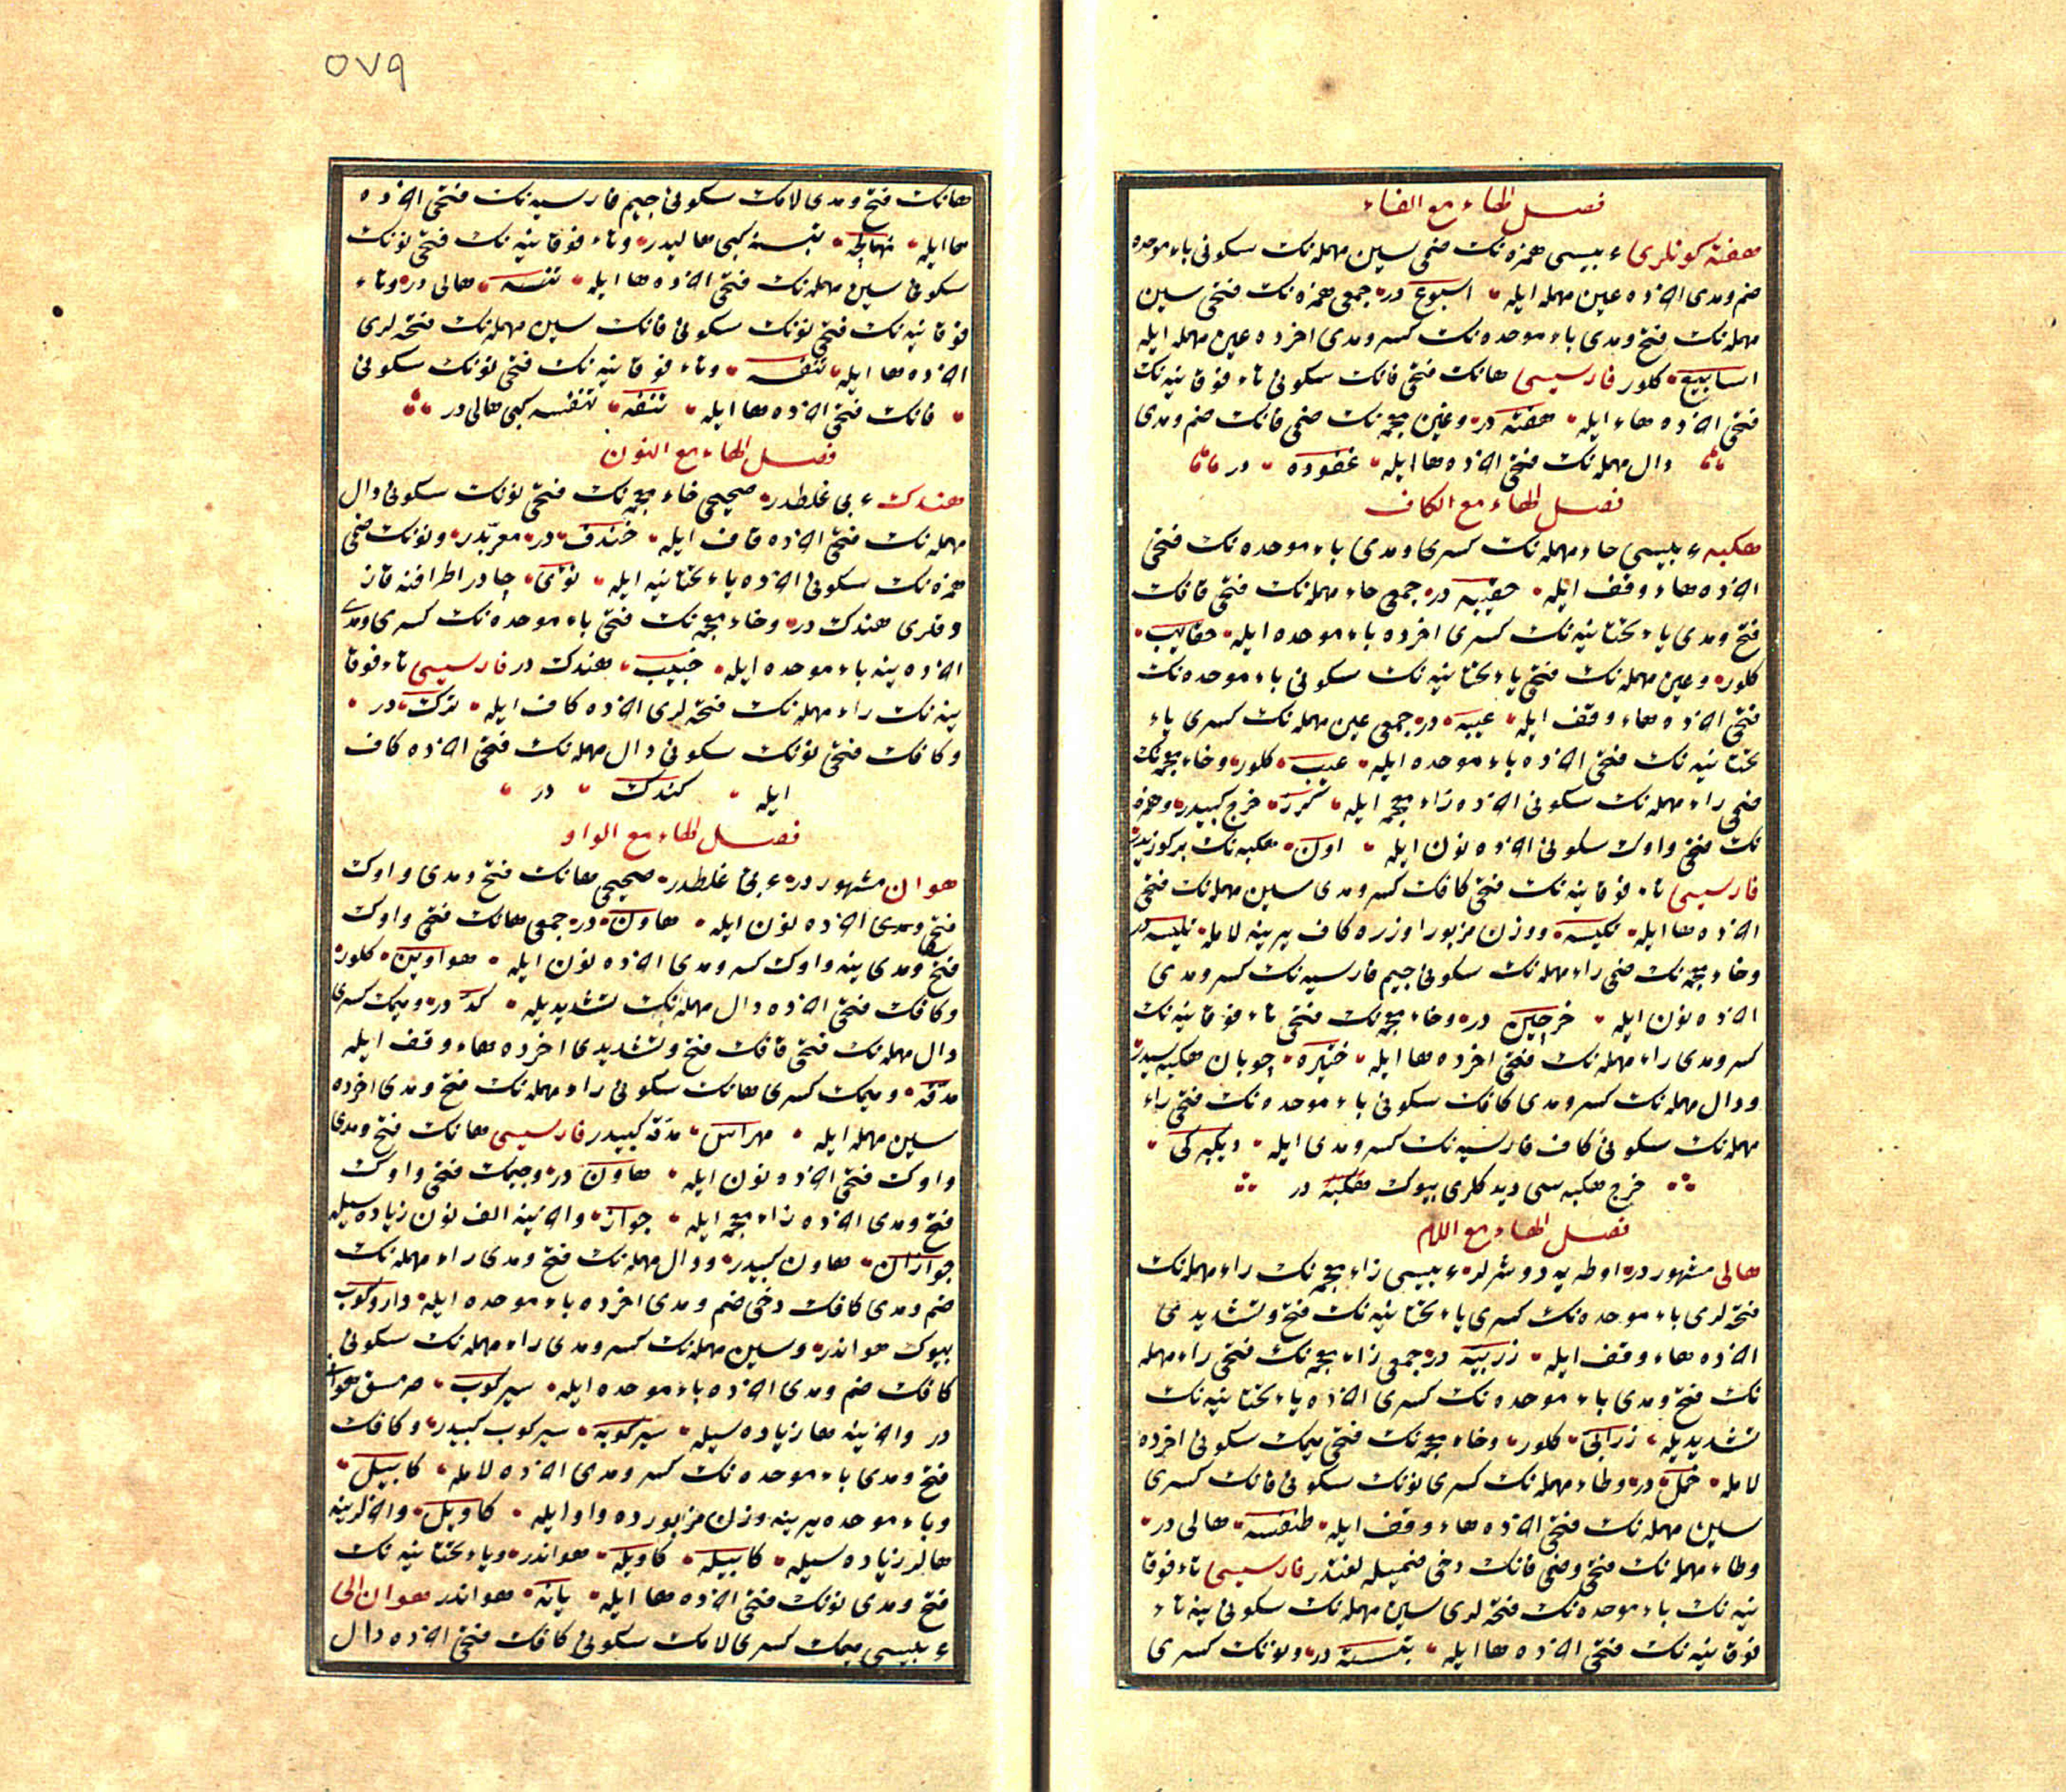 فصل الهاء مع الفاء
هفته كونلرى عربيسى همزه نك ضمى سين مهمله نك سكونى باء موحده
ضم و مدى آخرده عين مهمله ايله اسبوع در جمعى همزه نك فتحى سين
مهمله نك فتح و مدى باء موحده نك كسر و مدى اخرده عين مهمله ايله
اسابيع كلور فارسيسى هانك فتحى فانك سكونى تاء فوقانيه نك
فتحى آخرده هاء ايله هفته در وغين معجمه نك ضمى فانك ضم و مدى
دال مهمله نك فتحى آخرده ها ايله غفوده در
فصل الهاء مع الكاف
هكبه عربيسى حاء مهمله نك كسرى و مدى باء موحده نك فتحى
آخرده هاء وقف ايله حقيبه در جمعى حاء مهمله نك فتحى قافك
فتح و مدى ياء تحتانيه نك كسرى اخرده باء موحده ايله حقايب
كلور وعين مهمله نك فتحى ياء تحتانيه نك سكونى باء موحده نك
فتحى آخرده هاء وقف ايله عيبه در جمعى عين مهمله نك كسرى ياء
تحتانيه نك فتحى آخرده باء موحده ايله عيب كلور وخاء معجمه نك
ضمى راء مهمله نك سكونى آخرده زاء معجمه ايله خرج كبيدر وهمزه
نك فتحى واوك سكونى آخرده نون ايله اون هكبه نك بر كوزيدر
فارسيسى تاء فوقانيه نك فتحى كافك كسر و مدى سين مهمله نك فتحى
آخرده ها ايله تكيسه ووزن مزبور اوزره كاف يرينه لامله تليسه در
وخاء معجمه نك ضمى راء مهمله نك سكونى جيم فارسيه نك كسر و مدى
آخرده نون ايله خرچين در وخاء معجمه نك فتحى تاء فوقانيه نك
كسر و مدى راء مهمله نك فتحى اخرده ها ايله ختيره چوبان هكبه سيدر
ودال مهمله نك كسر و مدى كافك سكونى باء موحده نك فتحى راء
مهمله نك سكونى كاف فارسيه نك كسر و مدى ايله
خرج هكبه سى ديدكلرى بيوك هكبه در
فصل الهاء مع اللام
هالى مشهور در اوطه يه دوشرلر عربيسى زاء معجمه نك راء مهمله نك
فتحه لرى باء موحده نك كسرى ياء تحتانيه نك فتح و تشديدى
آخرده هاء وقف ايله زربيه در جمعى زاء معجمه نك فتحى راء مهمله
نك فتح و مدى باء موحده نك كسرى آخرده ياء تحتانيه نك
تشديديله زرابى كلور وخاء معجمه نك فتحى ميمك سكونى اخرده
لامله خمل در وطاء مهمله نك كسرى نونك سكونى فانك كسرى
سين مهمله نك فتحى آخرده هاء وقف ايله طنفسه هالى در
وطاء مهمله نك فتحى وضمى فانك دخى ضميله لغتدر فارسيسى تاء فوقا
نيه نك باء موحده نك فتحه لرى سين مهمله نك سكونى ينه تاء
فوقانيه نك فتحى آخرده ها ايله تبسته در ونونك كسرى
٥٧٩
هانك فتح و مدى لامك سكونى جيم فارسيه نك فتحى آخرده
ها ايله نهالچه تبسته كبى هاليدر وتاء فوقانيه نك فتحى نونك
سكونى سين مهمله نك فتحى آخرده ها ايله تنسه هالى در وتاء
فوقانيه نك فتحى نونك سكونى فانك سين مهمله نك فتحه لرى
آخرده ها ايله تنفسه وتاء فوقانيه نك فتحى نونك سكونى
فانك فتحى آخرده ها ايله تنفه تنفسه كبى هالى در
فصل الهاء مع النون
هندك عربى غلطدر صحيحى خاء معجمه نك فتحى نونك سكونى دال
مهمله نك فتحى آخرده قاف ايله خندق در معربدر ونونك ضمى
همزه نك سكونى آخرده ياء تحتانيه ايله نؤى چادر اطرافنه قاز
دقلرى هندك در وخاء معجمه نك فتحى باء موحده نك كسرى و مدى
آخرده ينه باء موحده ايله خبيب هندك در فارسيسى تاء فوقا
نيه نك راء مهمله نك فتحه لرى آخرده كاف ايله ترك در
وكافك فتحى نونك سكونى دال مهمله نك فتحى آخرده كاف
ايله كندك در
فصل الهاء مع الواو
هوان مشهور در عربى غلطدر صحيحى هانك فتح و مدى واوك
فتحى و مدى آخرده نون ايله هاون در جمعى هانك فتحى واوك
فتح و مدى ينه واوك كسر و مدى آخرده نون ايله هواوين كلور
وكافك فتحى آخرده دال مهمله نك تشديديله كد در وميمك كسرى
دال مهمله نك فتحى قافك فتح و تشديدى اخرده هاء وقف ايله
مدقه وميمك كسرى هانك سكونى راء مهمله نك فتح و مدى اخرده
سين مهمله ايله مهراس مدقه كبيدر فارسيسى هانك فتح و مدى
واوك فتحى آخرده نون ايله هاون در وجيمك فتحى واوك
فتح و مدى آخرده زاء معجمه ايله جواز وآخرينه الف نون زياده سيله
جوازان هاون كبيدر ودال مهمله نك فتح و مدى راء مهمله نك
ضم و مدى كافك دخى ضم و مدى اخرده باء موحده ايله داروكوب
بيوك هواندر وسين مهمله نك كسر و مدى راء مهمله نك سكونى
كافك ضم و مدى آخرده باء موحده ايله سيركوب صرمسق هوانى
در وآخرينه ها زياده سيله سيركوبه سيركوب كبيدر وكافك
فتح و مدى باء موحده نك كسر و مدى آخرده لامله كابيل
وباء موحده يرينه وزن مزبورده واو ايله كاويل وآخرلرينه
هالر زياده سيله كابيله كاويله هواندر وياء تحتانيه نك
فتح و مدى نونك فتحى آخرده ها ايله يانه هواندر هوان الى
عربيسى ميمك كسرى لامك سكونى كافك فتحى آخرده دال